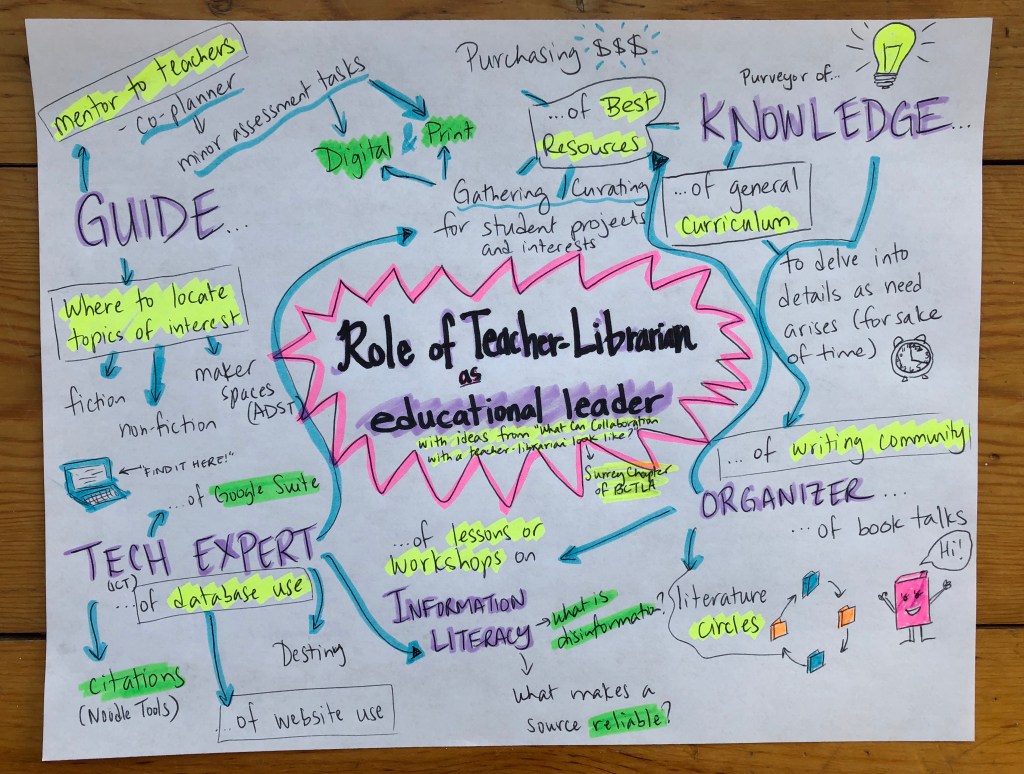 mentor to teachers
- co-planner
minor assessment tasks
Digital & Print
GUIDE...
Where to locate
topics of interest
fiction
non-fiction
maker
spaces
(ADST)
Purchasing $$$
...of Best
Resources
Gathering / Curating
for student projects
and interests
Purveyor of...
KNOWLEDGE...
...of general
curriculum
to delve into
details as need
arises (for sake
of time)
Role of Teacher-Librarian
as
educational leader
with ideas from "What Can Collaboration
with a teacher-librarian look like?"
Surrey Chapter
of BCTLA
"FIND IT HERE!"
...of Google Suite
TECH EXPERT
(ICT)
...of database use
citations
(Noodle Tools)
Destiny
...of website use
...of lessons or
workshops on
INFORMATION
LITERACY
what is
disinformation?
what makes a
source reliable?
...of writing community
ORGANIZER...
...of book talks
Hi!
literature
circles